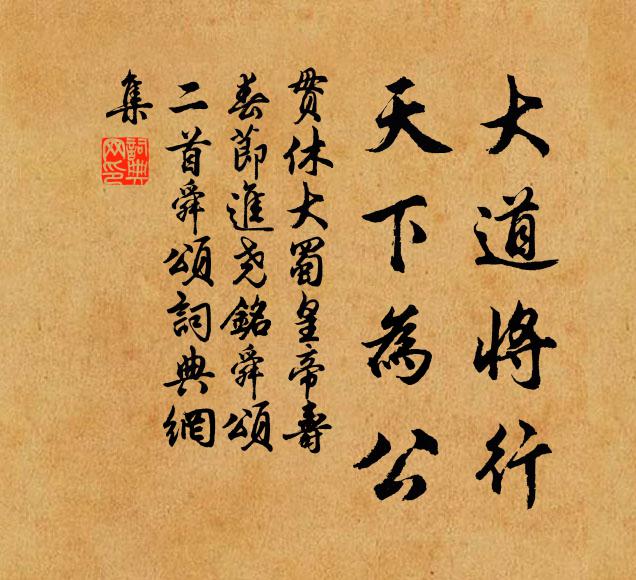 大道將行
天下為公
貫休大蜀皇帝壽
春節進堯銘舜頌
二首舜頌詞典網
集
詞典
网印